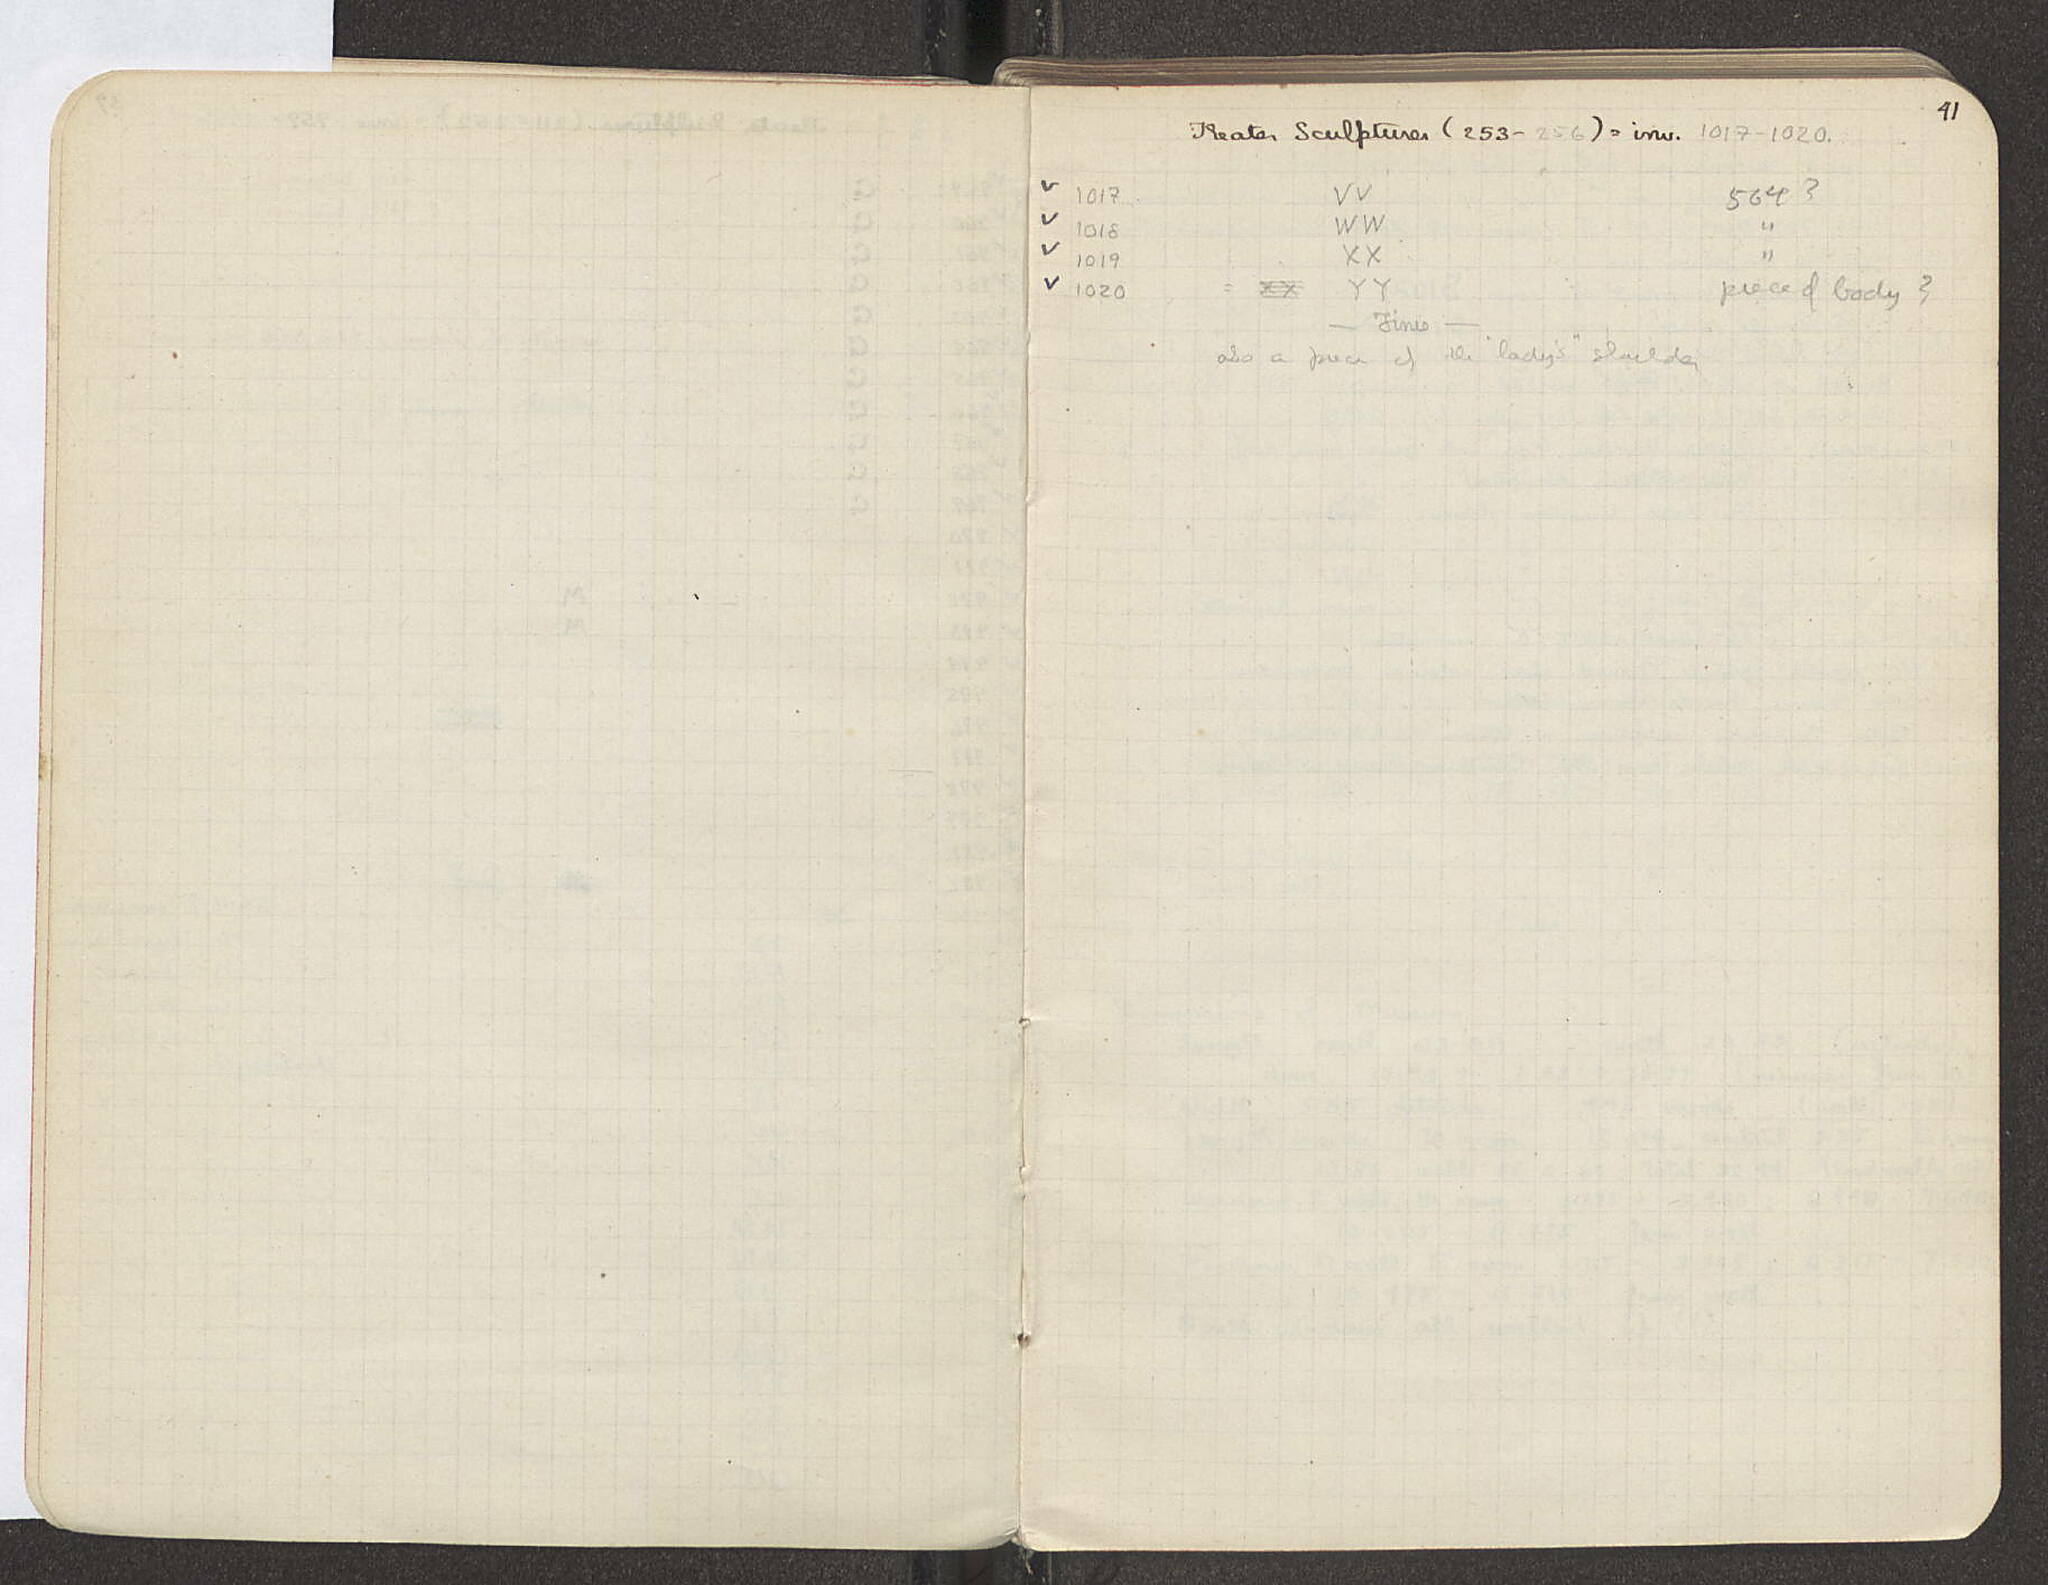 41
Theater Sculptures (253-256) = inv. 1017-1020.
✓ 1017 VV 564?
✓ 1018 WW "
✓ 1019 XX "
✓ 1020 = XX YY piece of body?
— Finis —
also a piece of the "lady's" shoulder